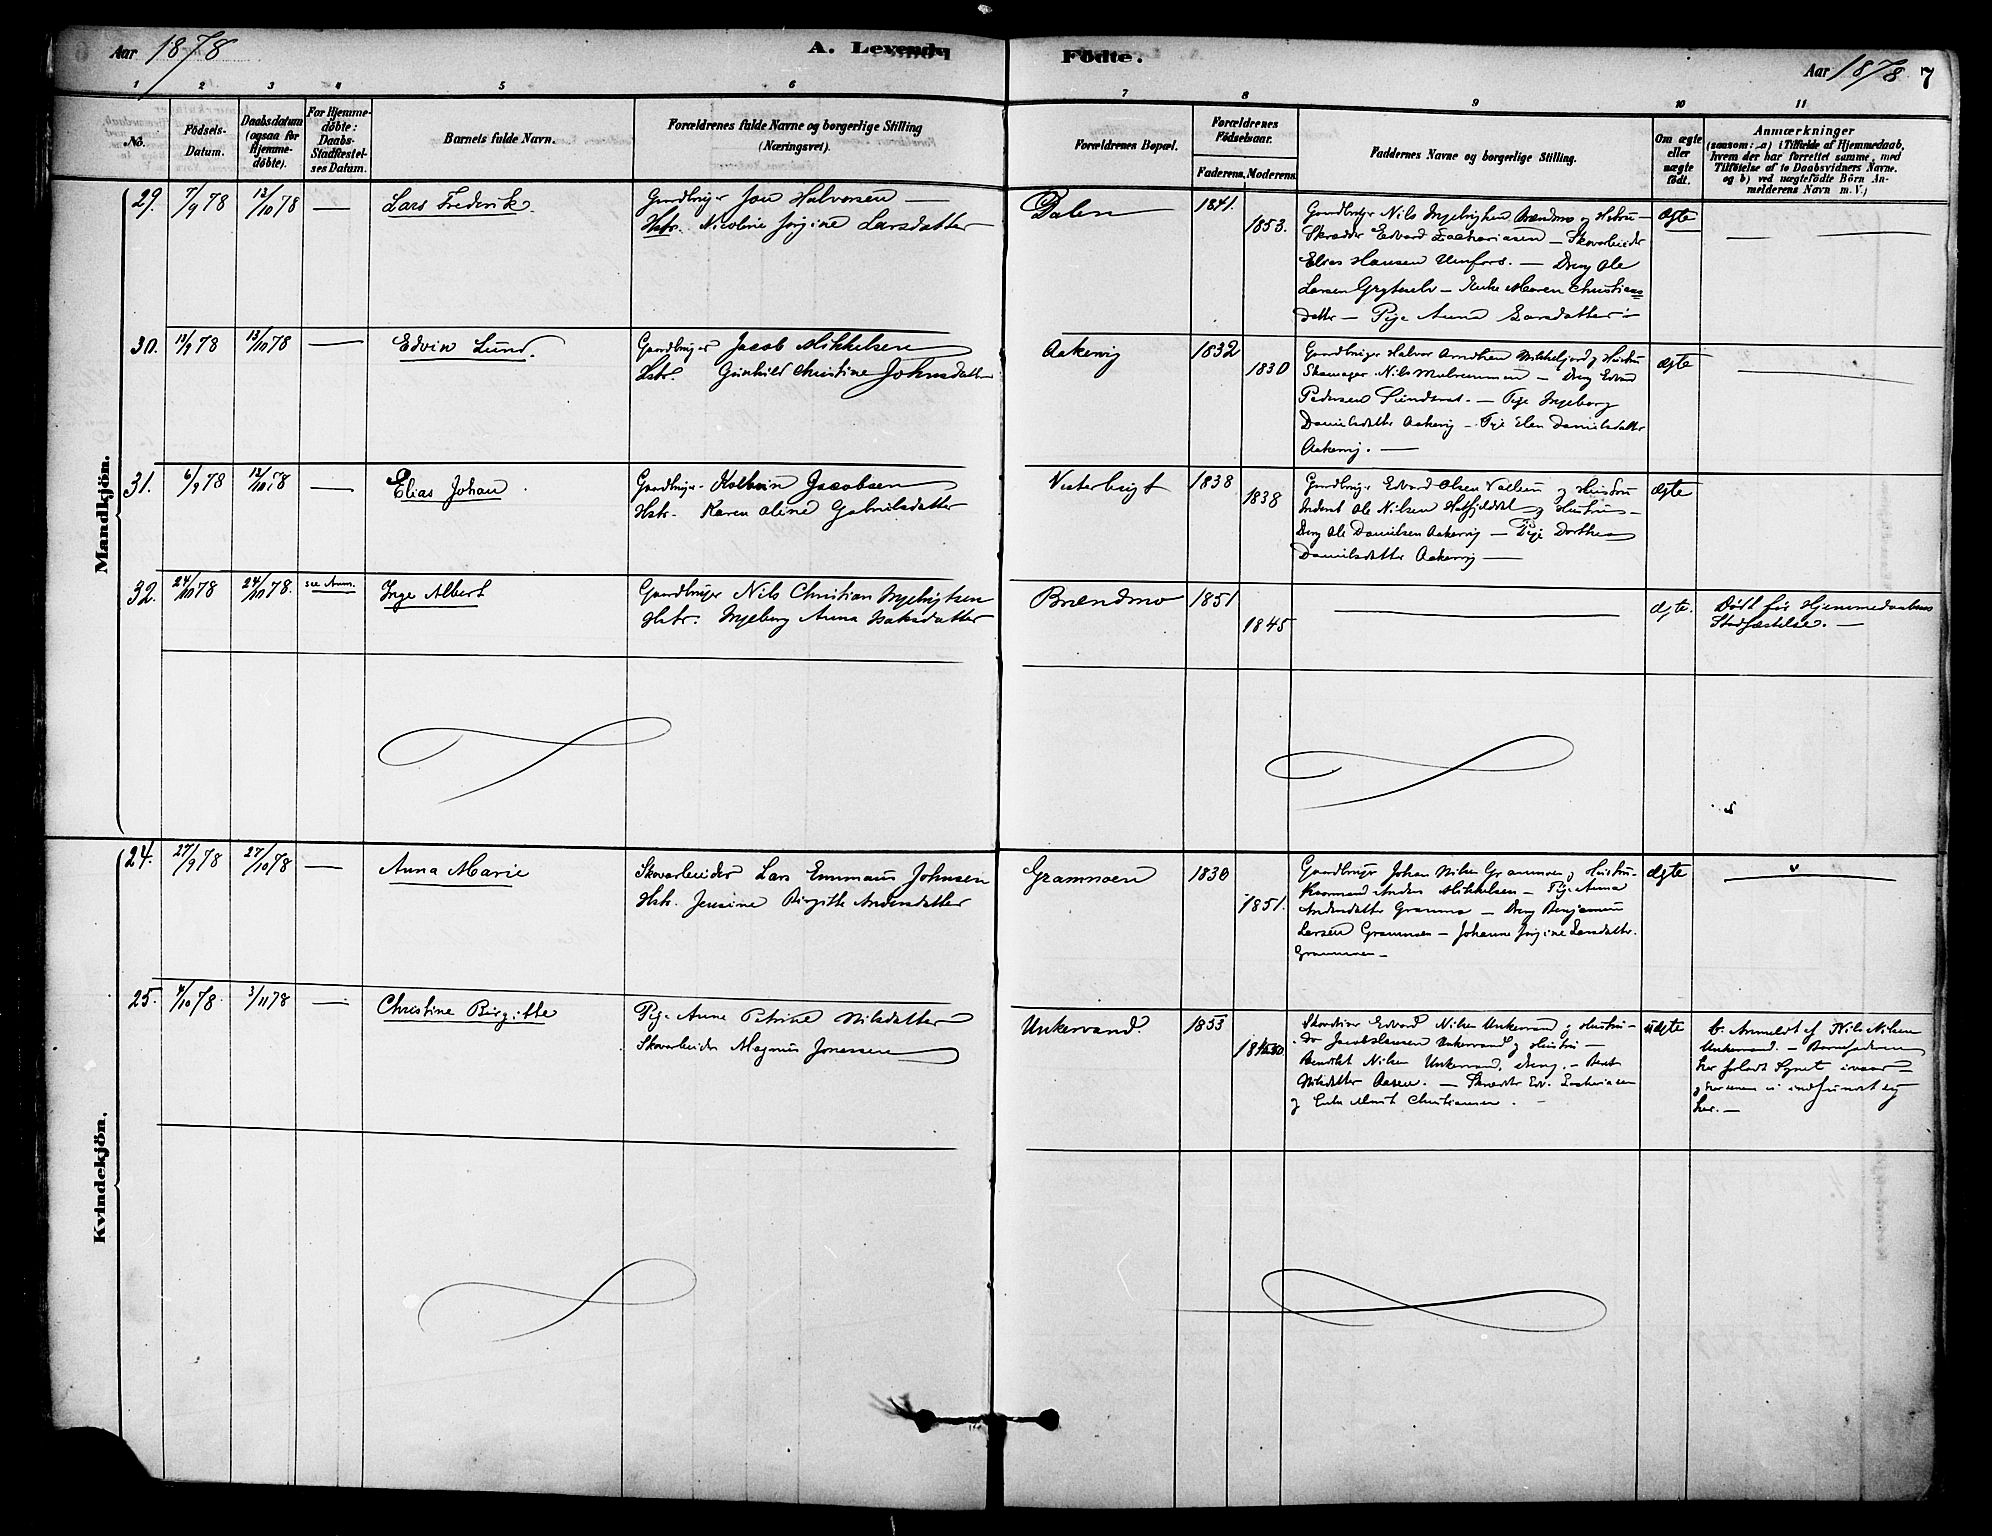 Aar 1878
A. Levende Födte.
Aar 1878. 7
1 2 3 4 5 6 7 8 9 10 11
No.
Födsels-Datum.
Daabsdatum (ogsaa for Hjemme-döbte).
For Hjemme-döbte: Daabs-Stadfæstel-ses Datum.
Barnets fulde Navn.
Forældrenes fulde Navne og borgerlige Stilling (Næringsvei).
Forældrenes Bopæl.
Forældrenes Födselsaar.
Faderens. Moderens.
Faddernes Navne og borgerlige Stilling.
Om ægte eller uægte födt.
Anmærkninger
(saasom: a) i Tilfælde af Hjemmedaab,
hvem der har forrettet samme, med
Tilföielse af to Daabsvidners Navne.
og b) ved uægtefödte Börn An-
melderens Navn m. V.)
Mandkjön.
29. 7/9 78 13/10 78 — Lars Frederik.
Gaardbruger Jon Halvorsen —
Hstr. Nicoline Jörgine Larsdatter
Dalen 1841. 1853.
Gaardbruger Nils Ingebrigtsen Brændmo og Hustru —
Skrædder Edvard Zachariasen — Skovarbeider
Elias Hansen Umfors. — Dreng Ole
Larsen — Enke Maren Christians
datter — Pige Anna Larsdatter
Ægte —
30. 13/9 78 13/10 78 — Edvin Lund.
Gaardbruger Jacob Mikkelsen
Hstr. Gunhild Christine Johnsdatter
Aakervig 1832 1830
Gaardbruger Halvor Arntsen og Hustru
Skomager Nils — Dreng Edvard
Pedersen — Pige Ingeborg
Danielsdatter Aakervig — Pige Elen Danielsdatter
Aakervig. —
Ægte —
31. 6/9 78 13/10 78 — Elias Johan.
Gaardbruger Jacobsen
Hstr. Karen Oline Gabrielsdatter
Vesterbugt 1838 1838
Gaardbruger Edvard Olsen og Hustru
Inderst Ole Nilsen Hatfjelddal og Hustru —
Dreng Ole Danielsen Aakervig — Pige Dorthea
Danielsdatter Aakervig —
Ægte
32. 24/10 78 24/10 78. see Anm. Inge Albert
Gaardbruger Nils Christian Ingebrigtsen
Hstr. Ingeborg Anna Isaksdatter
Brændmo 1851 1845
—
Ægte. Dödt för Hjemmedaabens
Stadfæstelse. —
Kvindekjön.
24. 27/9 78 27/10 78 — Anna Marie
Skovarbeider Lars Emmaus Johnsen
Hstr. Jensine Birgitte Andersdatter
Gramnoen 1830 1851.
Gaardbruger Johan Nilsen Gramnoen og Hustru —
Anders Mikkelsen — Pige Anna
Andersdatter — Dreng Benjamin
Larsen Gramnoen — Johanne Jörgine Larsdatter.
Gramnoen —
Ægte
25. 4/10 78. 3/11 78 — Christine Birgitte
Pige Anne Petrine Nilsdatter
Skovarbeider Magnus Jonassen
Unkervand. 1853
Edvard Nilsen Unkervand og Hustru —
Do Jacob Hansen Unkervand og Hustru —
Benedikt Nilsen Unkervand, Dreng. —
Nilsdatter — Skrædder Edv. Zachariasen
og Christiansen. —
Uægte b. Anmeldt af Nils Nilsen
Unkervand. — Barnefaderen
har forladt Sognet ivaar
og har ei indfundet sig
her. —